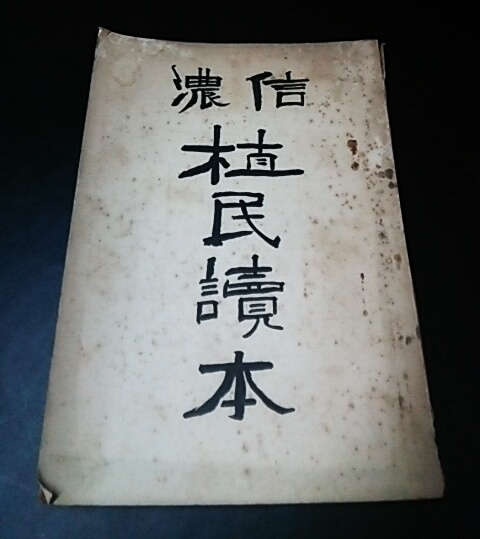 信濃
植民讀本